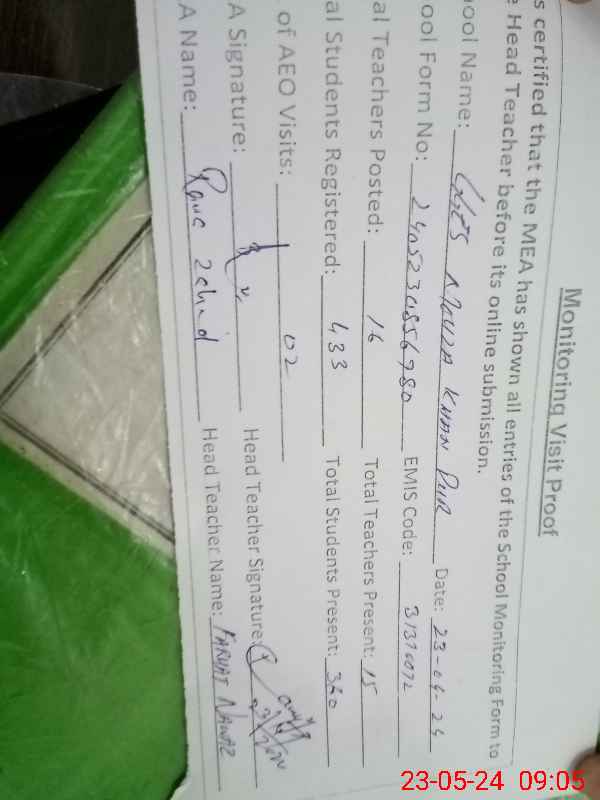 Monitoring Visit Proof
s certified that the MEA has shown all entries of the School Monitoring Form to
e Head Teacher before its online submission.
ool Name: GGES MAUZA KHAN PUR Date: 23-04-24
ool Form No: EMIS Code:
al Teachers Posted: 16 Total Teachers Present: 15
al Students Registered: 433 Total Students Present: 360
of AEO Visits: 02
A Signature: Head Teacher Signature:
A Name: Head Teacher Name: FARHAT NAWAZ
23-05-24 09:05